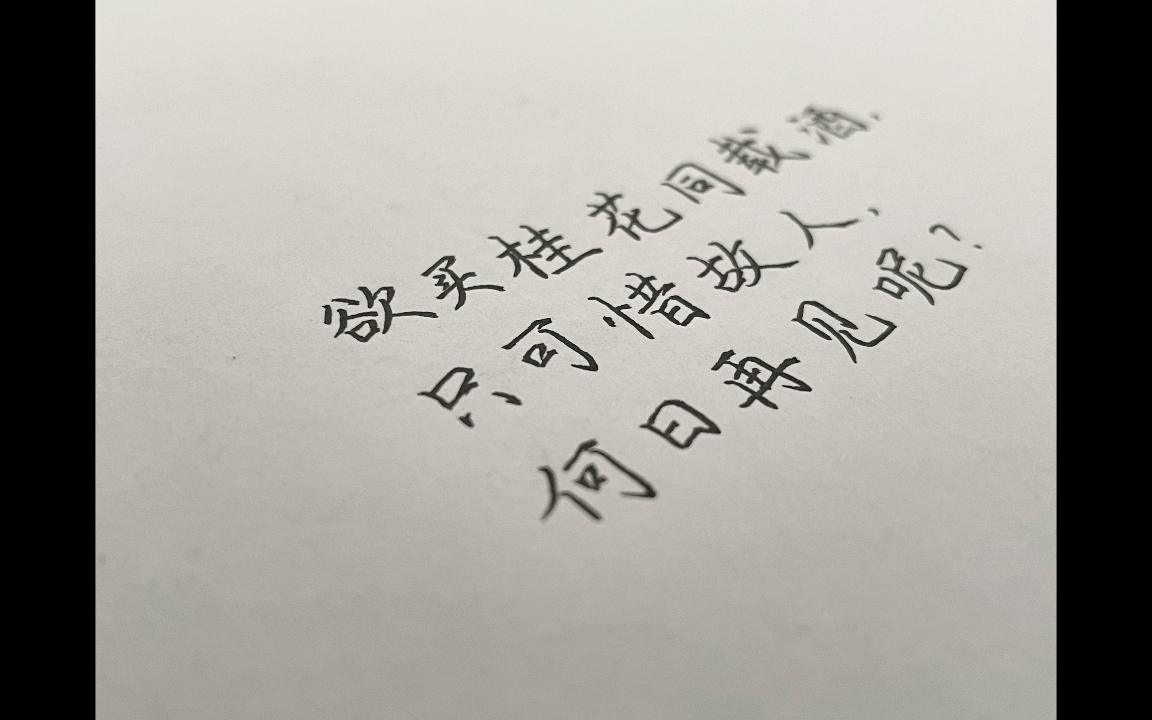 欲买桂花同载酒,
只可惜故人,
何日再见呢?